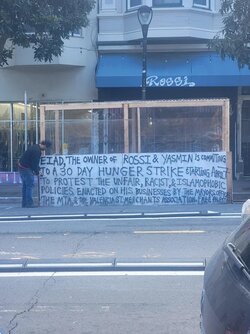 Rossi
EIAD, THE OWNER OF ROSSI & YASMIN IS COMMITING
TO A 30 DAY HUNGER STRIKE STARTING APRIL 7
TO PROTEST THE UNFAIR, RACIST, & ISLAMOPHOBIC
POLICIES ENACTED ON HIS BUSINESSES BY THE MAYORS OFFICE
THE MTA & THE VALENCIA ST MERCHANTS ASSOCIATION.